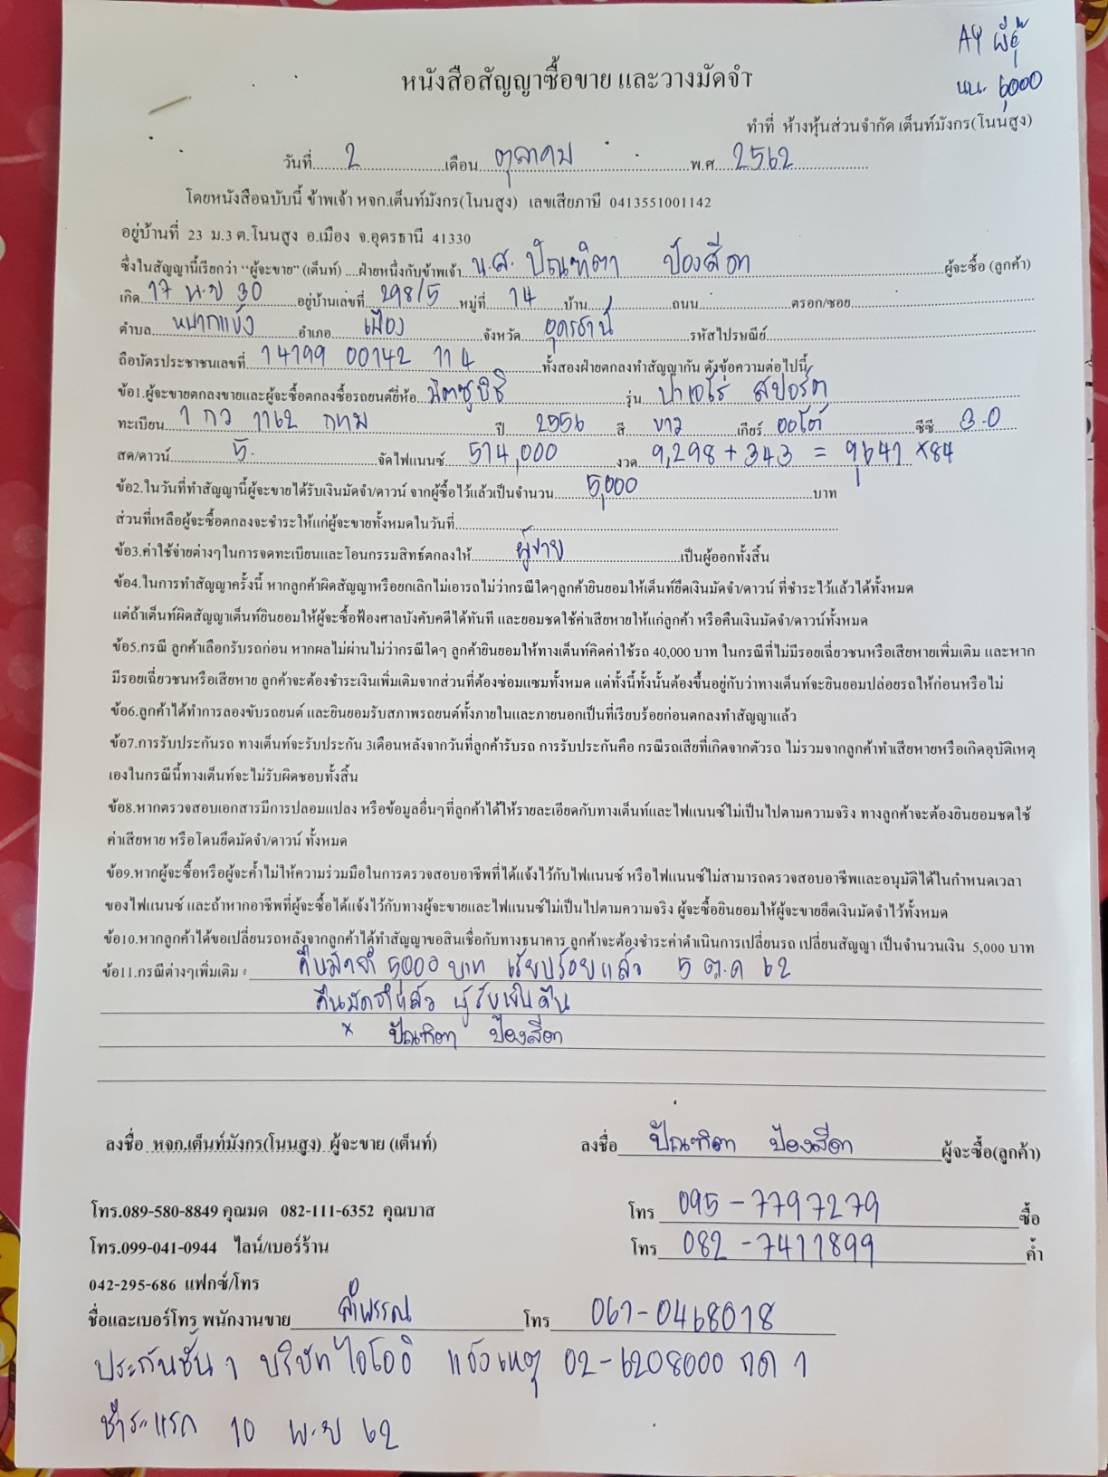 AY
นน. 6,000
หนังสือสัญญาซื้อขาย และวางมัดจำ
ทำที่ ห้างหุ้นส่วนจำกัด เต็นท์มังกร(โนนสูง)
วันที่ 2 เดือน ตุลาคม พ.ศ. 2562
โดยหนังสือฉบับนี้ ข้าพเจ้า หจก.เต็นท์มังกร(โนนสูง) เลขเสียภาษี 0413551001142
อยู่บ้านที่ 23 ม.3 ต.โนนสูง อ.เมือง จ.อุดรธานี 41330
ซึ่งในสัญญานี้เรียกว่า "ผู้จะขาย" (เต็นท์) ....ฝ่ายหนึ่งกับข้าพเจ้า น.ส. ปัณฑิตา ป้องสีดา ผู้จะซื้อ (ลูกค้า)
เกิด 17 พ.ย 30 อยู่บ้านเลขที่ 298/5 หมู่ที่ 14 บ้าน ถนน ตรอก/ซอย
ตำบล หมากแข้ง อำเภอ เมือง จังหวัด อุดรธานี รหัสไปรษณีย์
ถือบัตรประชาชนเลขที่ 14199 00142 11 4 ทั้งสองฝ่ายตกลงทำสัญญากัน ดังข้อความต่อไปนี้
ข้อ1.ผู้จะขายตกลงขายและผู้จะซื้อตกลงซื้อรถยนต์ยี่ห้อ มิตซูบิชิ รุ่น ปาเจโร่ สปอร์ต
ทะเบียน 1 กว 1162 กทม ปี 2556 สี ขาว เกียร์ ออโต้ ซีซี 3.0
สด/ดาวน์ 5. จัดไฟแนนซ์ 514,000 งวด 9,298 + 343 = 9,641 x84
ข้อ2.ในวันที่ทำสัญญานี้ผู้จะขายได้รับเงินมัดจำ/ดาวน์ จากผู้ซื้อไว้แล้วเป็นจำนวน 5,000 บาท
ส่วนที่เหลือผู้จะซื้อตกลงจะชำระให้แก่ผู้จะขายทั้งหมดในวันที่
ข้อ3.ค่าใช้จ่ายต่างๆในการจดทะเบียนและโอนกรรมสิทธ์ตกลงให้ ผู้ขาย เป็นผู้ออกทั้งสิ้น
ข้อ4.ในการทำสัญญาครั้งนี้ หากลูกค้าผิดสัญญาหรือยกเลิกไม่เอารถไม่ว่ากรณีใดๆลูกค้ายินยอมให้เต็นท์ยึดเงินมัดจำ/ดาวน์ ที่ชำระไว้แล้วได้ทั้งหมด
แต่ถ้าเต็นท์ผิดสัญญาเต็นท์ยินยอมให้ผู้จะซื้อฟ้องศาลบังคับคดีได้ทันที และยอมชดใช้ค่าเสียหายให้แก่ลูกค้า หรือคืนเงินมัดจำ/ดาวน์ทั้งหมด
ข้อ5.กรณี ลูกค้าเลือกรับรถก่อน หากผลไม่ผ่านไม่ว่ากรณีใดๆ ลูกค้ายินยอมให้ทางเต็นท์คิดค่าใช้รถ 40,000 บาท ในกรณีที่ไม่มีรอยเฉี่ยวชนหรือเสียหายเพิ่มเติม และหาก
มีรอยเฉี่ยวชนหรือเสียหาย ลูกค้าจะต้องชำระเงินเพิ่มเติมจากส่วนที่ต้องซ่อมแซมทั้งหมด แต่ทั้งนี้ทั้งนั้นต้องขึ้นอยู่กับว่าทางเต็นท์จะยินยอมปล่อยรถให้ก่อนหรือไม่
ข้อ6.ลูกค้าได้ทำการลองขับรถยนต์ และยินยอมรับสภาพรถยนต์ทั้งภายในและภายนอกเป็นที่เรียบร้อยก่อนตกลงทำสัญญาแล้ว
ข้อ7.การรับประกันรถ ทางเต็นท์จะรับประกัน 3เดือนหลังจากวันที่ลูกค้ารับรถ การรับประกันคือ กรณีรถเสียที่เกิดจากตัวรถ ไม่รวมจากลูกค้าทำเสียหายหรือเกิดอุบัติเหตุ
เองในกรณีนี้ทางเต็นท์จะไม่รับผิดชอบทั้งสิ้น
ข้อ8.หากตรวจสอบเอกสารมีการปลอมแปลง หรือข้อมูลอื่นๆที่ลูกค้าได้ให้รายละเอียดกับทางเต็นท์และไฟแนนซ์ไม่เป็นไปตามความจริง ทางลูกค้าจะต้องยินยอมชดใช้
ค่าเสียหาย หรือโดนยึดมัดจำ/ดาวน์ ทั้งหมด
ข้อ9.หากผู้จะซื้อหรือผู้จะค้ำไม่ให้ความร่วมมือในการตรวจสอบอาชีพที่ได้แจ้งไว้กับไฟแนนซ์ หรือไฟแนนซ์ไม่สามารถตรวจสอบอาชีพและอนุมัติได้ในกำหนดเวลา
ของไฟแนนซ์ และถ้าหากอาชีพที่ผู้จะซื้อได้แจ้งไว้กับทางผู้จะขายและไฟแนนซ์ไม่เป็นไปตามความจริง ผู้จะซื้อยินยอมให้ผู้จะขายยึดเงินมัดจำไว้ทั้งหมด
ข้อ10.หากลูกค้าได้ขอเปลี่ยนรถหลังจากลูกค้าได้ทำสัญญาขอสินเชื่อกับทางธนาคาร ลูกค้าจะต้องชำระค่าดำเนินการเปลี่ยนรถ เปลี่ยนสัญญา เป็นจำนวนเงิน 5,000 บาท
ข้อ11.กรณีต่างๆเพิ่มเติม : คืนมัดจำ 5000 บาท เรียบร้อยแล้ว 5 ต.ค 62
คืนมัดจำแล้ว ผู้รับเงินคืน
x ปัณฑิตา ป้องสีดา
ลงชื่อ หจก.เต็นท์มังกร(โนนสูง) ผู้จะขาย (เต็นท์) ลงชื่อ ปัณฑิตา ป้องสีดา ผู้จะซื้อ(ลูกค้า)
โทร.089-580-8849 คุณมด 082-111-6352 คุณบาส โทร 095-7797279 ซื้อ
โทร.099-041-0944 ไลน์/เบอร์ร้าน โทร 082-7411899 ค้ำ
042-295-686 แฟกซ์/โทร
ชื่อและเบอร์โทร พนักงานขาย ลำพรรณ โทร 061-0468018
ประกันชั้น 1 บริษัท ไอโออิ แจ้งเหตุ 02-6208000 กด 1
ชำระแรก 10 พ.ย 62